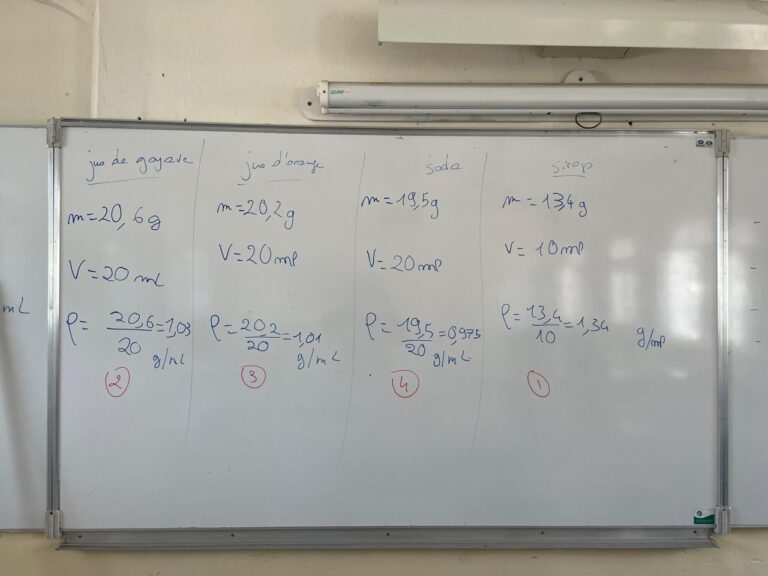 jus de goyave
m = 20,6g
V = 20 mL
ρ = 20,6/20 = 1,03 g/mL
2
jus d'orange
m = 20,2g
V = 20 ml
ρ = 20,2/20 = 1,01 g/mL
3
soda
m = 19,5g
V = 20 ml
ρ = 19,5/20 = 0,975 g/mL
4
sirop
m = 13,4g
V = 10 ml
ρ = 13,4/10 = 1,34 g/ml
1
mL